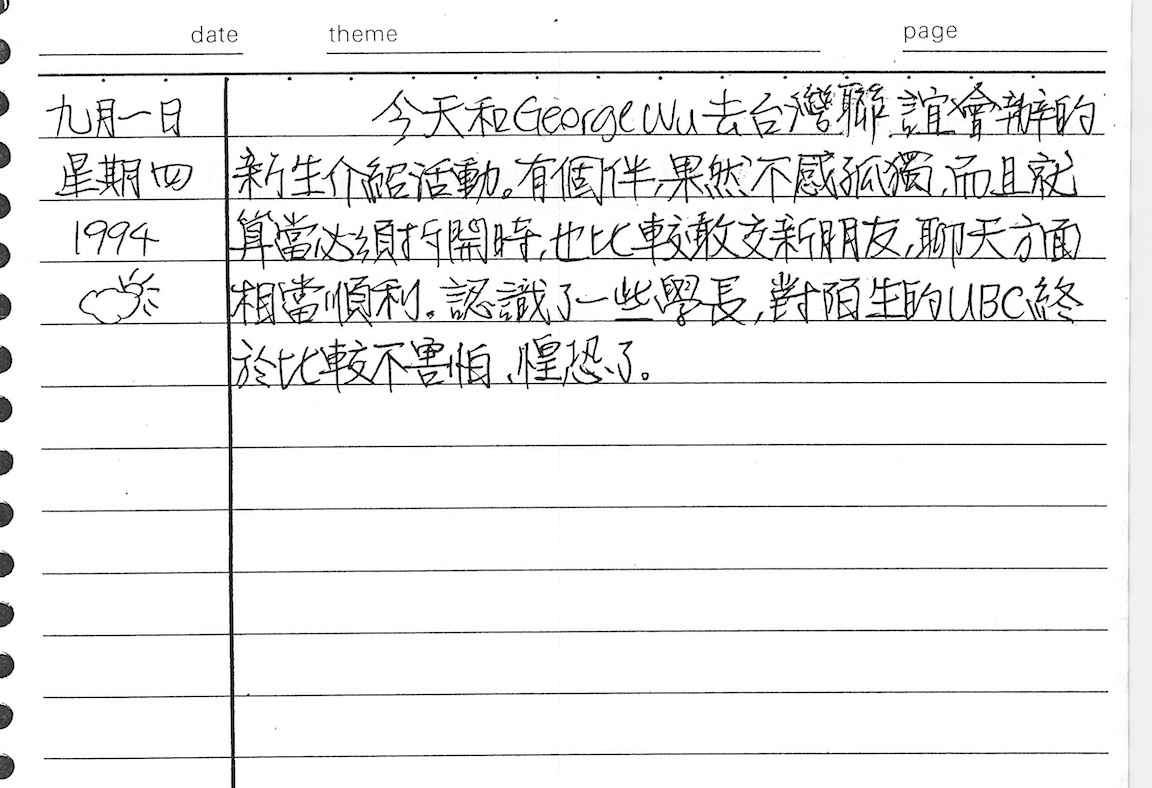 date theme page
九月一日
星期四
1994
今天和George Wu去台灣聯誼會辦的
新生介紹活動。有個伴,果然不感孤獨,而且就
算當必須折開時,也比較敢交新朋友,聊天方面
相當順利。認識了一些學長,對陌生的UBC終
於比較不害怕、惶恐了。